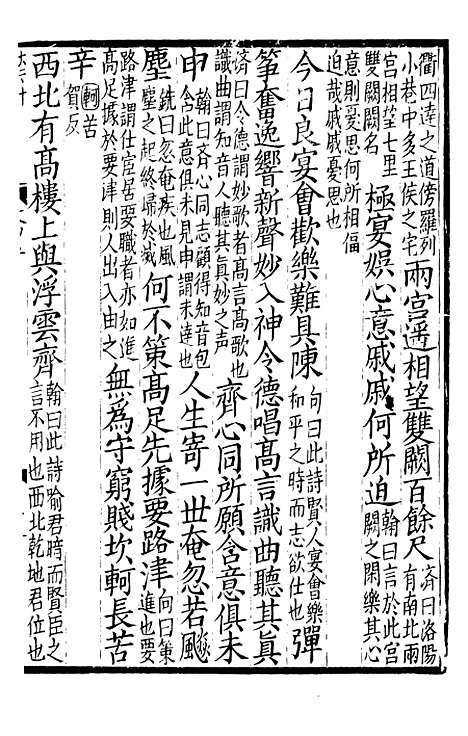 衢四達之道傍羅列小巷中多王侯之宅兩宮遥相望雙闕百餘尺濟曰洛陽有南北兩
宮相望七里雙闕闕名極宴娛心意戚戚何所迫翰曰言於此宮闕之閑樂其心
意則憂思何所相偪迫哉戚戚憂思也
今日良宴會歡樂難具陳向曰此詩賢人宴會樂和平之時而志欲仕也彈
箏奮逸響新聲妙入神令德唱高言識曲聽其真
濟曰令德謂妙歌者高言高歌也識曲謂知音人聽其真妙之声齊心同所願含意俱未
申翰曰齊心同志願得知音包含此意俱未見申謂未達也人生寄一世奄忽若飈
塵銑曰忽奄疾也風塵之起終歸於滅何不策高足先據要路津向曰策進也要
路津謂仕宦居要職者亦如進高足據於要津則人出入由之無為守窮賤坎軻長苦
辛軻苦賀反
西北有高樓上與浮雲齊翰曰此詩喻君時而賢臣之言不用也西北乾地君位也